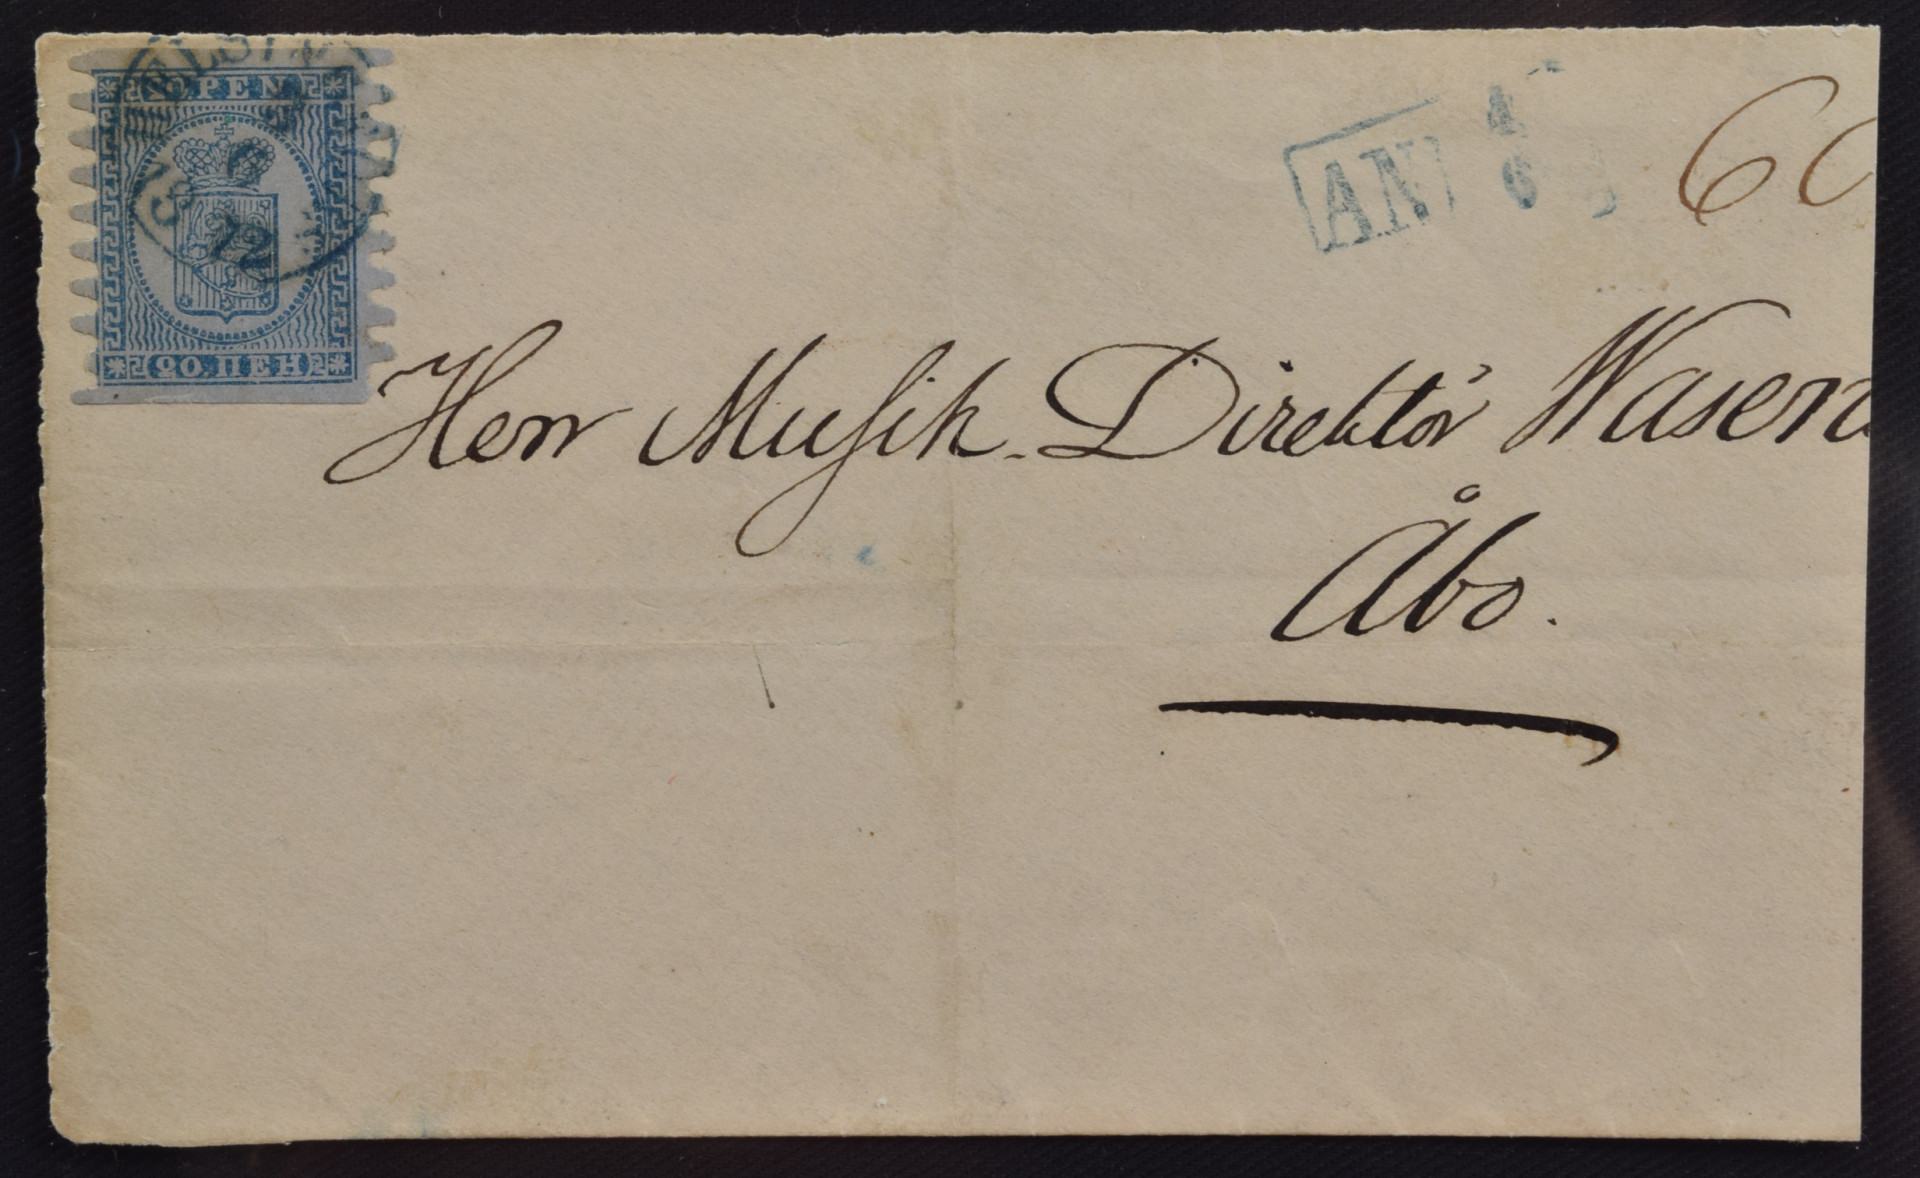 20.PEN.
18 72
20.ПЕН
AN 4
6
60
Herr Musik-Direktör Wasen
Åbo.